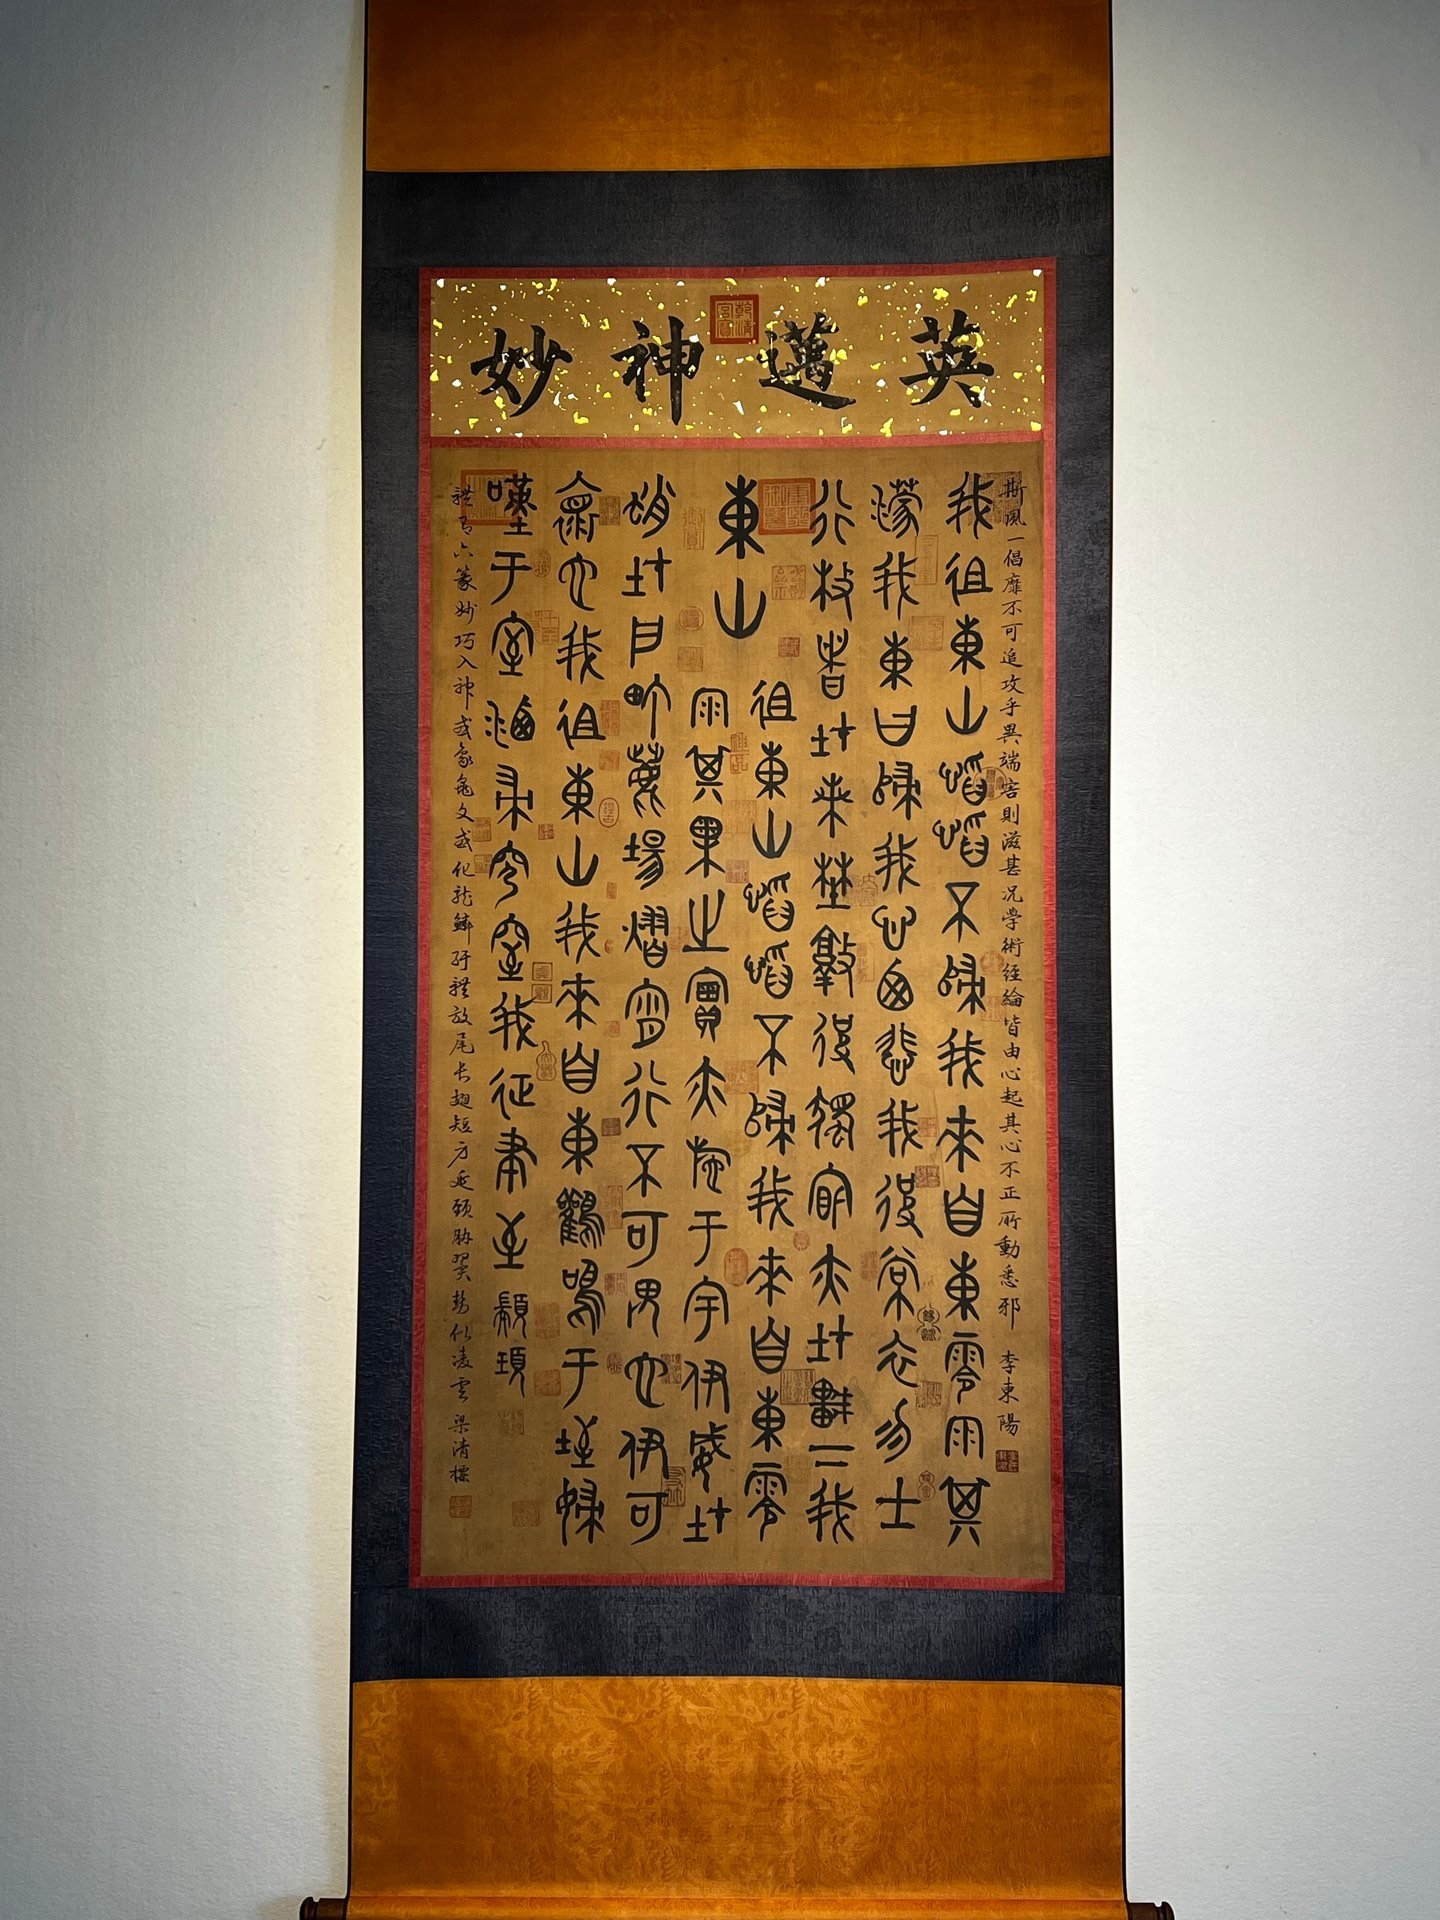 英邁神妙
斯風一倡靡不可追攻乎異端害則滋甚況學術經綸皆由心起其心不正所動悉邪 李東陽
我徂東山慆慆不歸我來自東零雨其
濛我東曰歸我心西悲我彼裳衣勿士
行枚者在桑野敦彼獨宿亦在車下我
東山
徂東山慆慆不歸我來自東零
雨其果之實亦施于宇伊威在
蛸在戶町鹿場熠宵行不可畏也伊可
懷也我徂東山我來自東鸛鳴于垤婦
嘆于室洒埽穹窒我征聿至
體有六篆妙巧入神或象龜文或比龍鱗紆體放尾長翅短身延頸脅翼勢似凌雲 梁清標